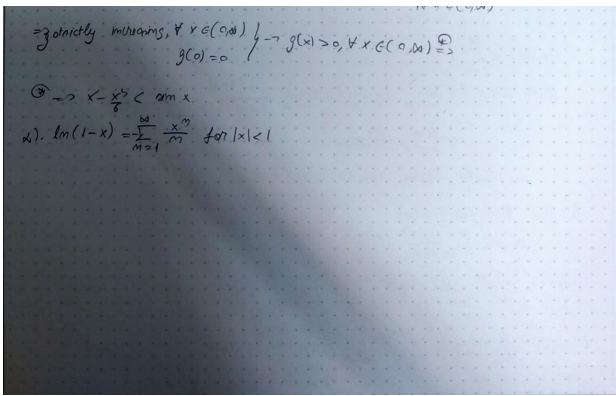 => g strictly increasing, ∀ x ∈ (0,∞) } → g(x) > 0, ∀ x ∈ (0,∞) (*)=>
g(0) = 0
(*) => x - x³/6 < sin x
2). ln(1-x) = -∑_{n=1}^{∞} xⁿ/n for |x|<1